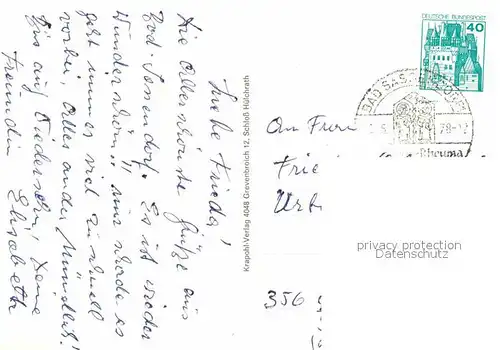 Liebe Frieda!
Die allerschönsten Grüße aus
Bad Sassendorf. Es ist wieder
Wunderschön!! nur würde es
geht immer viel zu schnell
vorbei, Alles andere Mündlich!
Bis auf Wiedersehen! Deine
Freundin Elisabeth
Krapohl-Verlag 4048 Grevenbroich 12, Schloß Hülchrath
DEUTSCHE BUNDESPOST
40
BAD SASSENDORF
78-1
Rheuma
An Frau
Frie
Urb
356
privacy protection
Datenschutz